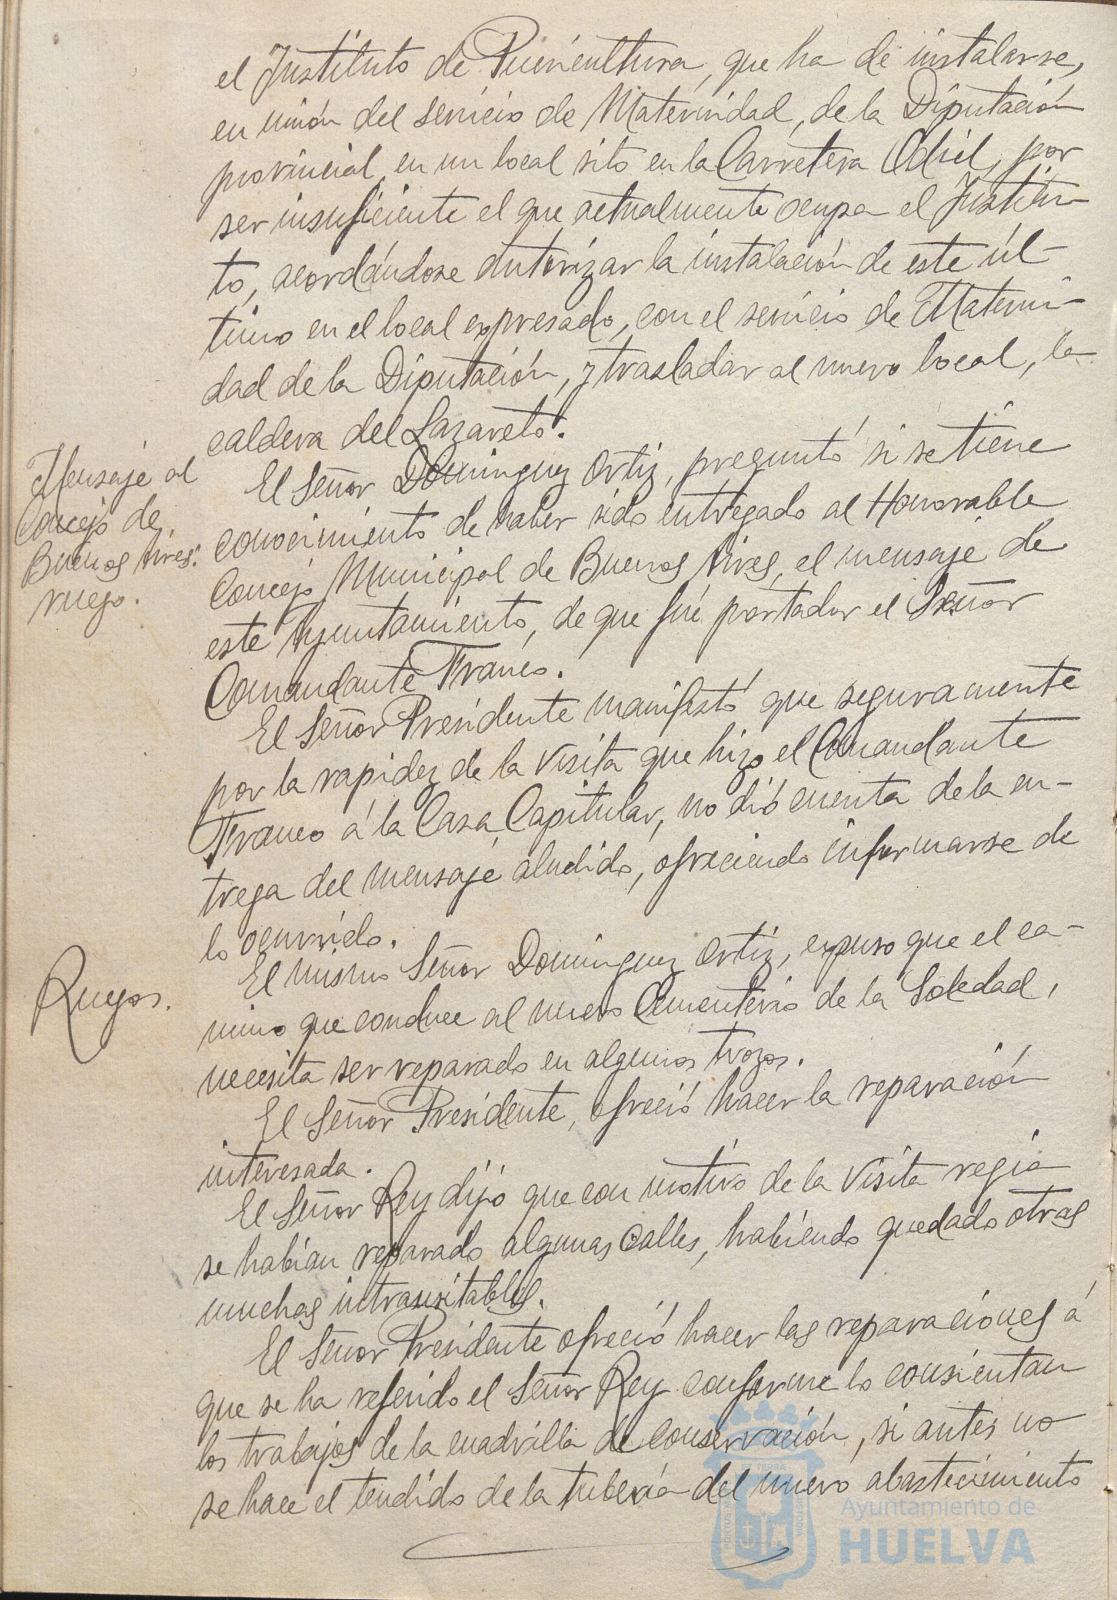 el Instituto de Puericultura, que ha de instalarse,
en unión del servicio de Maternidad, de la Diputación
provincial, en un local sito en la Carretera Odiel, por
ser insuficiente el que actualmente ocupa el Institu-
to, acordándose autorizar la instalación de este úl-
timo en el local expresado, con el servicio de Materni-
dad de la Diputación, y trasladar al nuevo local, la
caldera del Lazareto.
Mensaje al
Concejo de
Buenos Aires:
ruego.
El Señor Dominguez Ortiz, preguntó si se tiene
conocimiento de haber sido entregado al Honorable
Concejo Municipal de Buenos Aires, el mensaje de
este Ayuntamiento, de que fué portador el Señor
Comandante Franco.
El Señor Presidente manifestó que seguramente
por la rapidez de la visita que hizo el Comandante
Franco á la Casa Capitular, no dió cuenta de la en-
trega del mensaje aludido, ofreciendo informarse de
lo ocurrido.
Ruegos.
El mismo Señor Dominguez Ortiz, expuso que el ca-
mino que conduce al nuevo Cementerio de la Soledad,
necesita ser reparado en algunos trozos.
El Señor Presidente, ofreció hacer la reparación
interesada.
El Señor Rey dijo que con motivo de la visita regia
se habían reparado algunas calles, habiendo quedado otras
muchas intransitables.
El Señor Presidente ofreció hacer las reparaciones á
que se ha referido el Señor Rey conforme lo consientan
los trabajos de la cuadrilla de conservación, si antes no
se hace el tendido de la tubería del nuevo abastecimiento
Ayuntamiento de
HUELVA